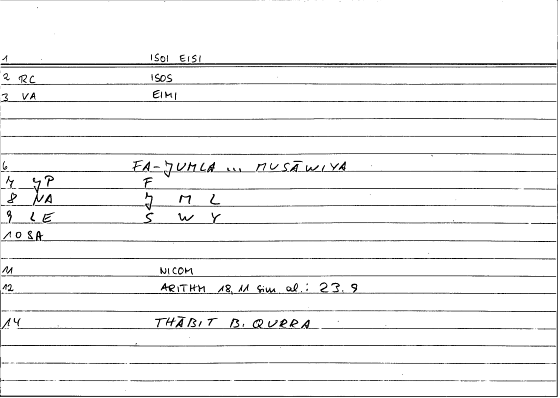 1 ISOI EISI
2 RC ISOS
3 VA EIMI
6 FA-JUMLA ... MUSĀWIYA
7 JP F
8 NA J M L
9 LE S W Y
10 SA
11 NICOM
12 ARITHM 18,11 sim. al.: 23.9
14 THĀBIT B. QURRA